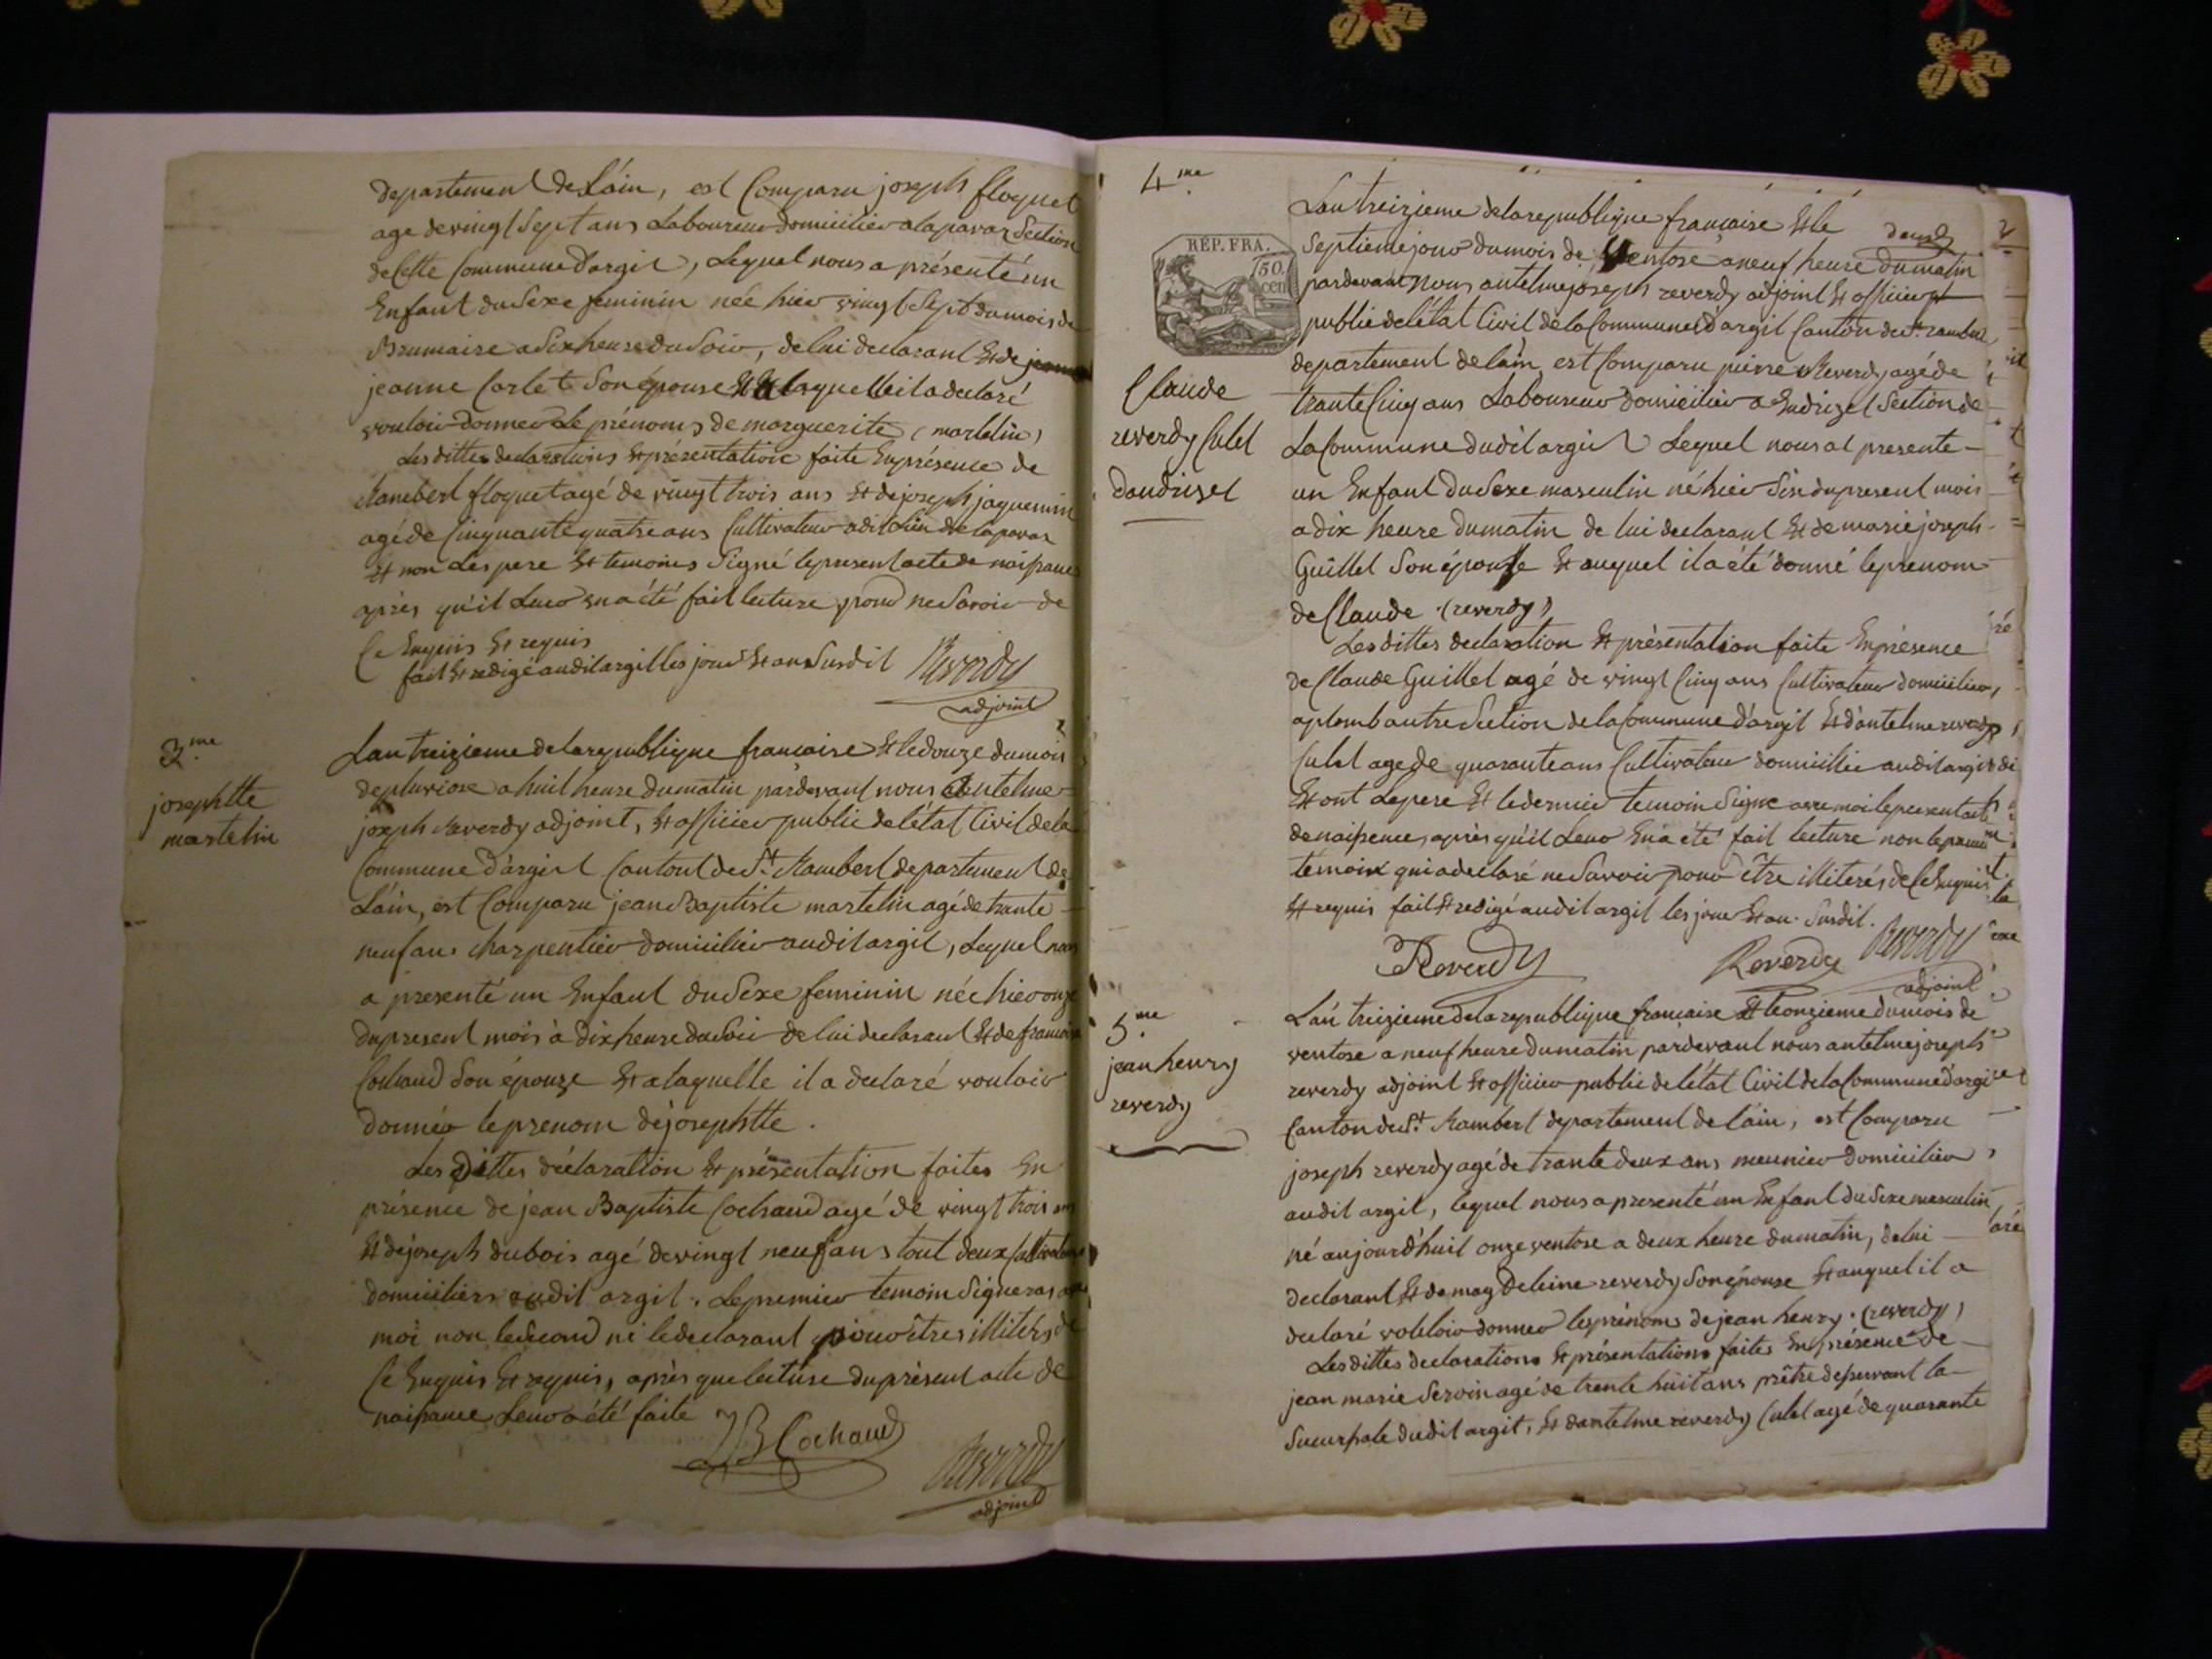 departement de L'ain, est Comparu joseph floquet
age de vingt Sept ans Laboureur domicilier a laparar Section
de Cette Commune d'argit, Lequel nous a présenté un
Enfant du Sexe feminin née hier vingt Sept du mois de
Brumaire a Six heure du Soir, de lui declarant Et de
jeanne Carlet Son épouse Et a laquelle il a declaré
vouloir donner Le prénoms de marguerite (martelin)
Les dittes declarations Et présentation faite En présence de
Rambert floquet agé de vingt trois ans Et de joseph jaquemin
agé de Cinquante quatre ans Cultivateur adit Lieu de laparar
Et non Les pere Et temoins Signé le present acte de naissance
après qu'il Leur en a été fait lecture pour ne Savoir de
Ce Enquis Et requis
fait Et redigé audit argit les jour Et an Susdit Reverdy
adjoint
3.me
josephtte
martelin
L'an treizieme de la republique francaise Et le douze du mois
de pluviose a huit heure du matin pardevant nous antelme
joseph Reverdy adjoint, Et officier public de l'état Civil de la
Commune d'argit Canton de St. Rambert departement de
L'ain, est Comparu jean Baptiste martelin agé de trante
neuf ans charpentier domicilier audit argit, Lequel nous
a presenté un Enfant du Sexe feminin née hier onze
du present mois à dix heure du Soir de lui declarant Et de francoise
Cochaud Son épouze Et a laquelle il a declaré vouloir
donnér le prenom de josephtte.
Les dittes déclaration Et présentation faites En
présence de jean Baptiste Cochaud agé de vingt trois ans
Et de joseph dubois agé de vingt neuf ans tout deux Cultivateurs
domiciliers audit argit. Le premier temoin Signeras avec
moi non le Second ni le declarant pour être illiterés de
Ce Enquis Et requis, après que lecture du présent acte de
naissance Leur a été faite
JB Cochaud
Reverdy
adjoint
4.me
RÉP. FRA.
50. cent
Claude
reverdy Culet
dandrizet
L'an treizieme de la republique francaise Et le
deux 2
Septieme jour du mois de Ventose a neuf heure du matin
pardevant Nous antelme joseph reverdy adjoint Et officier
public de l'état Civil de la Commune d'argit Canton de St. rambert
departement de lain, est Comparu pierre Reverdy agé de
trante Cinq ans Laboureur domicilier a Endrizet Section de
La Commune dudit argit Lequel nous at presente
un Enfant du Sexe masculin né hier Six du present mois
a dix heure du matin de lui declarant Et de marie joseph
Guillet Son épouse Et auquel il a été donné le prenom
de Claude. (reverdy)
Les dittes declaration Et présentation faite En présence
de Claude Guillet agé de vingt Cinq ans Cultivateur domicilier,
a plomb autre Section de la Commune d'argit Et d'antelme reverdy
Culet age de quarante ans Cultivateur domicilié audit argit
Et ont Le pere Et le dernier temoin Signé avec moi le present acte
de naissence, après qu'il Leur En a été fait lecture non le premier
témoin qui a declaré ne Savoir pour être illiterés de Ce Enquis
Et requis fait Et redigé audit argit les jour Et an Susdit.
Reverdy Reverdy Reverdy
adjoint
5.me
jean henry
reverdy
L'an treizieme de la republique francaise Et le onzieme du mois de
ventose a neuf heure du matin pardevant nous antelme joseph
reverdy adjoint Et officier public de l'état Civil de la Commune d'argit
Canton de St. Rambert departement de l'ain, est Comparu
joseph reverdy agé de trante deux ans meunier domicilier,
audit argit, lequel nous a presenté un Enfant du Sexe masculin
né aujourd'huit onze ventose a deux heure du matin, de lui
declarant Et de magdeleine reverdy Son épouse Et auquel il a
declaré vouloir donner les prénoms de jean henry. (reverdy)
Les dittes declarations Et présentations faites En présence de
jean marie Servin agé de trente huit ans prêtre desservant la
Sucursale dudit argit, Et dantelme reverdy Culet agé de quarante